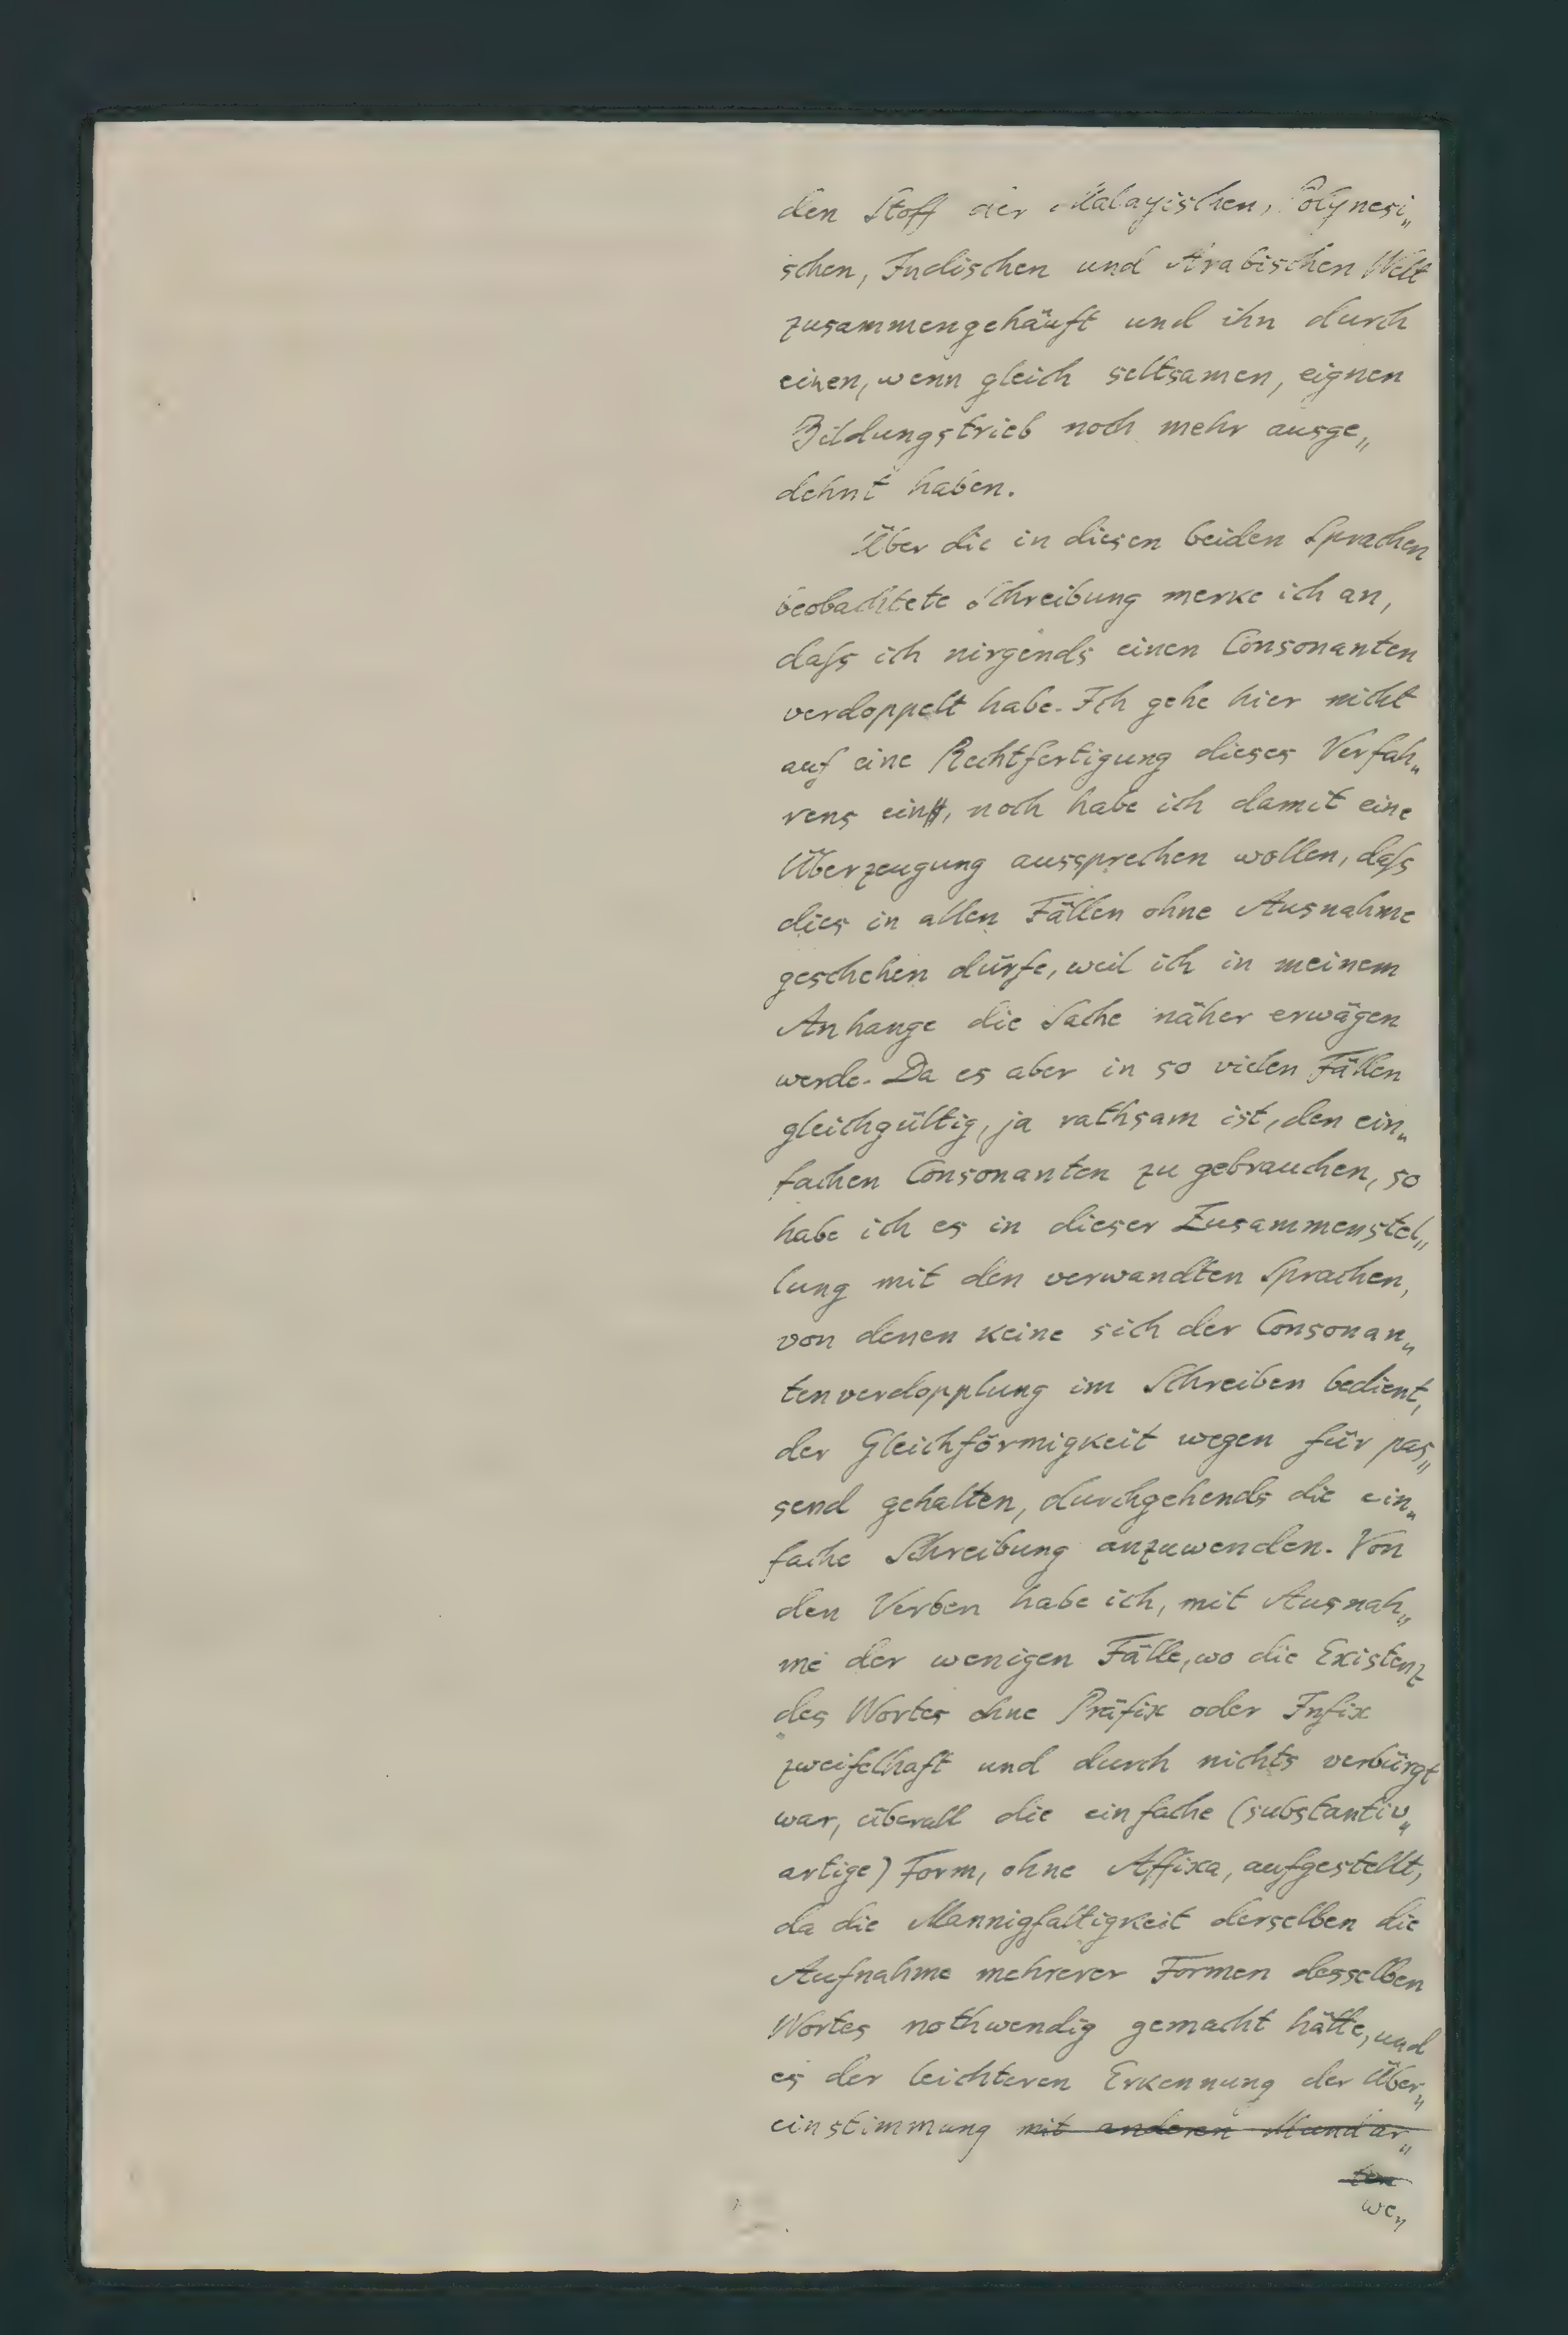 den Stoff der Malayischen, Polynesi„
schen, Indischen und Arabischen Welt
zusammengehäuft und ihn durch
einen, wenn gleich seltsamen, eignen
Bildungstrieb noch mehr ausge„
dehnt haben.
Über die in diesen beiden Sprachen
beobachtete Schreibung merke ich an,
daſs ich nirgends einen Consonanten
verdoppelt habe. Ich gehe hier nicht
auf eine Rechtfertigung dieses Verfah„
rens ein, noch habe ich damit eine
Überzeugung aussprechen wollen, daſs
dies in allen Fällen ohne Ausnahme
geschehen dürfe, weil ich in meinem
Anhange die Sache näher erwägen
werde. Da es aber in so vielen Fällen
gleichgültig, ja rathsam ist, den ein„
fachen Consonanten zu gebrauchen, so
habe ich es in dieser Zusammenstel„
lung mit den verwandten Sprachen,
von denen keine sich der Consonan„
tenverdopplung im Schreiben bedient,
der Gleichförmigkeit wegen für pas„
send gehalten, durchgehends die ein„
fache Schreibung anzuwenden. Von
den Verben habe ich, mit Ausnah„
me der wenigen Fälle, wo die Existenz
des Wortes ohne Präfix oder Infix
zweifelhaft und durch nichts verbürgt
war, überall die einfache (substantiv„
artige) Form, ohne Affixa, aufgestellt,
da die Mannigfaltigkeit derselben die
Aufnahme mehrerer Formen desselben
Wortes nothwendig gemacht hätte, und
es der leichteren Erkennung der Über„
einstimmung mit anderen Mundar„
ten
we„